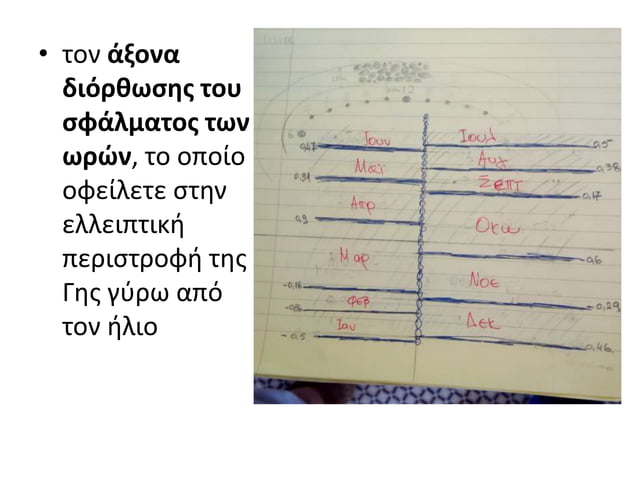 • τον άξονα
διόρθωσης του
σφάλματος των
ωρών, το οποίο
οφείλετε στην
ελλειπτική
περιστροφή της
Γης γύρω από
τον ήλιο
12
6
Ιουν
Ιουλ
0,47
0,5
Μαϊ
Αυγ
0,38
0,31
Σεπτ
0,17
Απρ
0,9
Οκω
Μαρ
0,6
Νοε
-0,16
-0,29
Φεβ
Ιαν
Δεκ
-0,5
-0,46